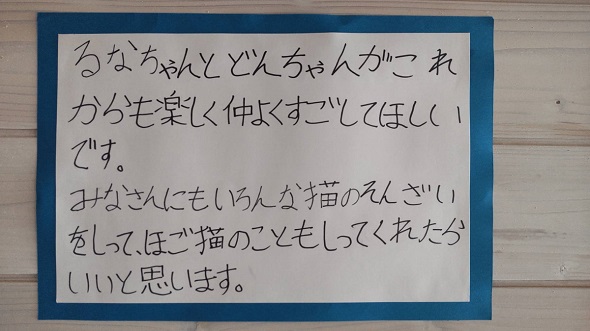 るなちゃんとどんちゃんがこれ
からも楽しく仲よくすごしてほしい
です。
みなさんにもいろんな猫のそんざい
をしって、ほご猫のこともしってくれたら
いいと思います。